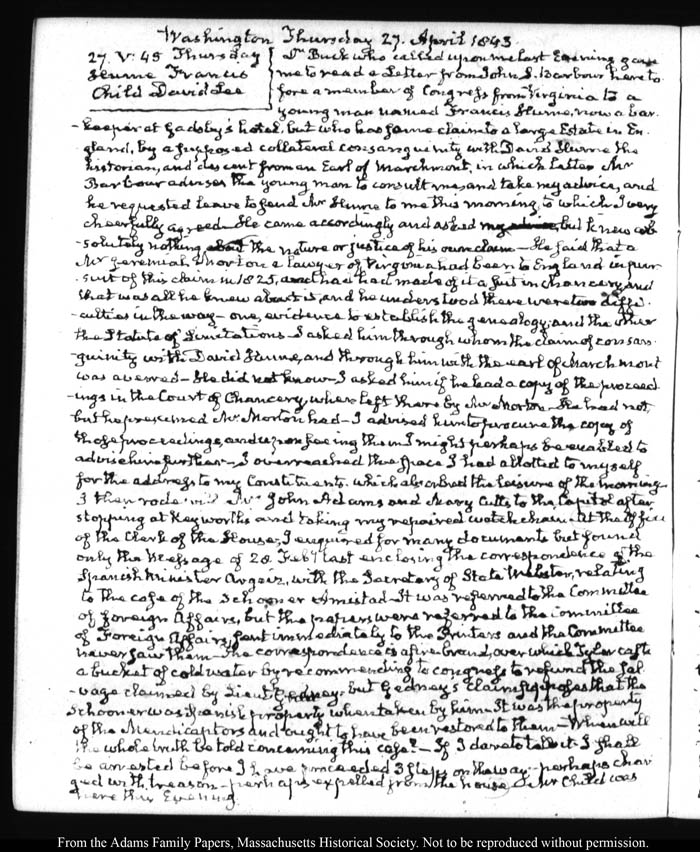 Washington Thursday 27. April 1843.
27. V: 45 Thursday
Hume Francis
Child David Lee
Dr Buck who called upon me last Evening gave
me to read a Letter from John S. Barbour hereto-
fore a member of Congress from Virginia to a
young man named Francis Hume, now a bar-
-keeper at Gadsby's hotel, but who has some claim to a large Estate in En-
gland, by a supposed collateral consanguinity with David Hume the
historian, and descent from an Earl of Marchmont, in which Letter Mr
Barbour advises the young man to consult me, and take my advice, and
he requested leave to send Mr Hume to me this morning, to which I very
cheerfully agreed — He came accordingly and asked my, but knew ab-
-solutely nothing about the nature or justice of his own claim — He said that a
Mr Jeremiah Morton a lawyer of Virginia had been to England in pur-
-suit of this claim in 1825, and had made of it a suit in Chancery, and
that was all he knew about it, and he understood there were two diffi-
-culties in the way — one, evidence to establish the genealogy, and the other
the Statute of Limitations — I asked him through whom the claim of consan-
-guinity with David Hume, and through him with the earl of Marchmont
was averred — He did not know — I asked him if he had a copy of the proceed-
-ings in the Court of Chancery, when left there by Mr Morton — He had not,
but he presumed Mr Morton had — I advised him to procure the copy of
those proceedings, and upon seeing them I might perhaps be enabled to
advise him further — I overreached the space I had allotted to myself
for the address to my Constituents. which absorbed the leisure of the morning —
I then rode with Mrs John Adams and Mary Cutts to the Capitol after
stopping at Keyworths and taking my repaired watch chain — At the Office
of the Clerk of the House, I enquired for many documents but found
only the Message of 28 Feby last enclosing the correspondence of the
Spanish Minister Argaiz, with the Secretary of State Webster, relating
to the case of the Schooner Amistad — It was referred to the Committee
of foreign Affairs, but the papers were referred to the Committee
of Foreign Affairs, sent immediately to the Printers and the Committee
never saw them — The correspondence is a fire brand, over which Tyler casts
a bucket of cold water by recommending to Congress to refund the sal-
-vage claimed by Lieut Gedney. but Gedney's claim presupposes that the
Schooner was Spanish property when taken by him — It was the property
of the Mendi captors and ought to have been restored to them — When will
the whole truth be told concerning this case? — If I dare to tell it I shall
be arrested before I have proceeded 3 steps on the way — perhaps char-
ged with treason — perhaps expelled from the house — Mr Child was
here this Evening.
From the Adams Family Papers, Massachusetts Historical Society. Not to be reproduced without permission.